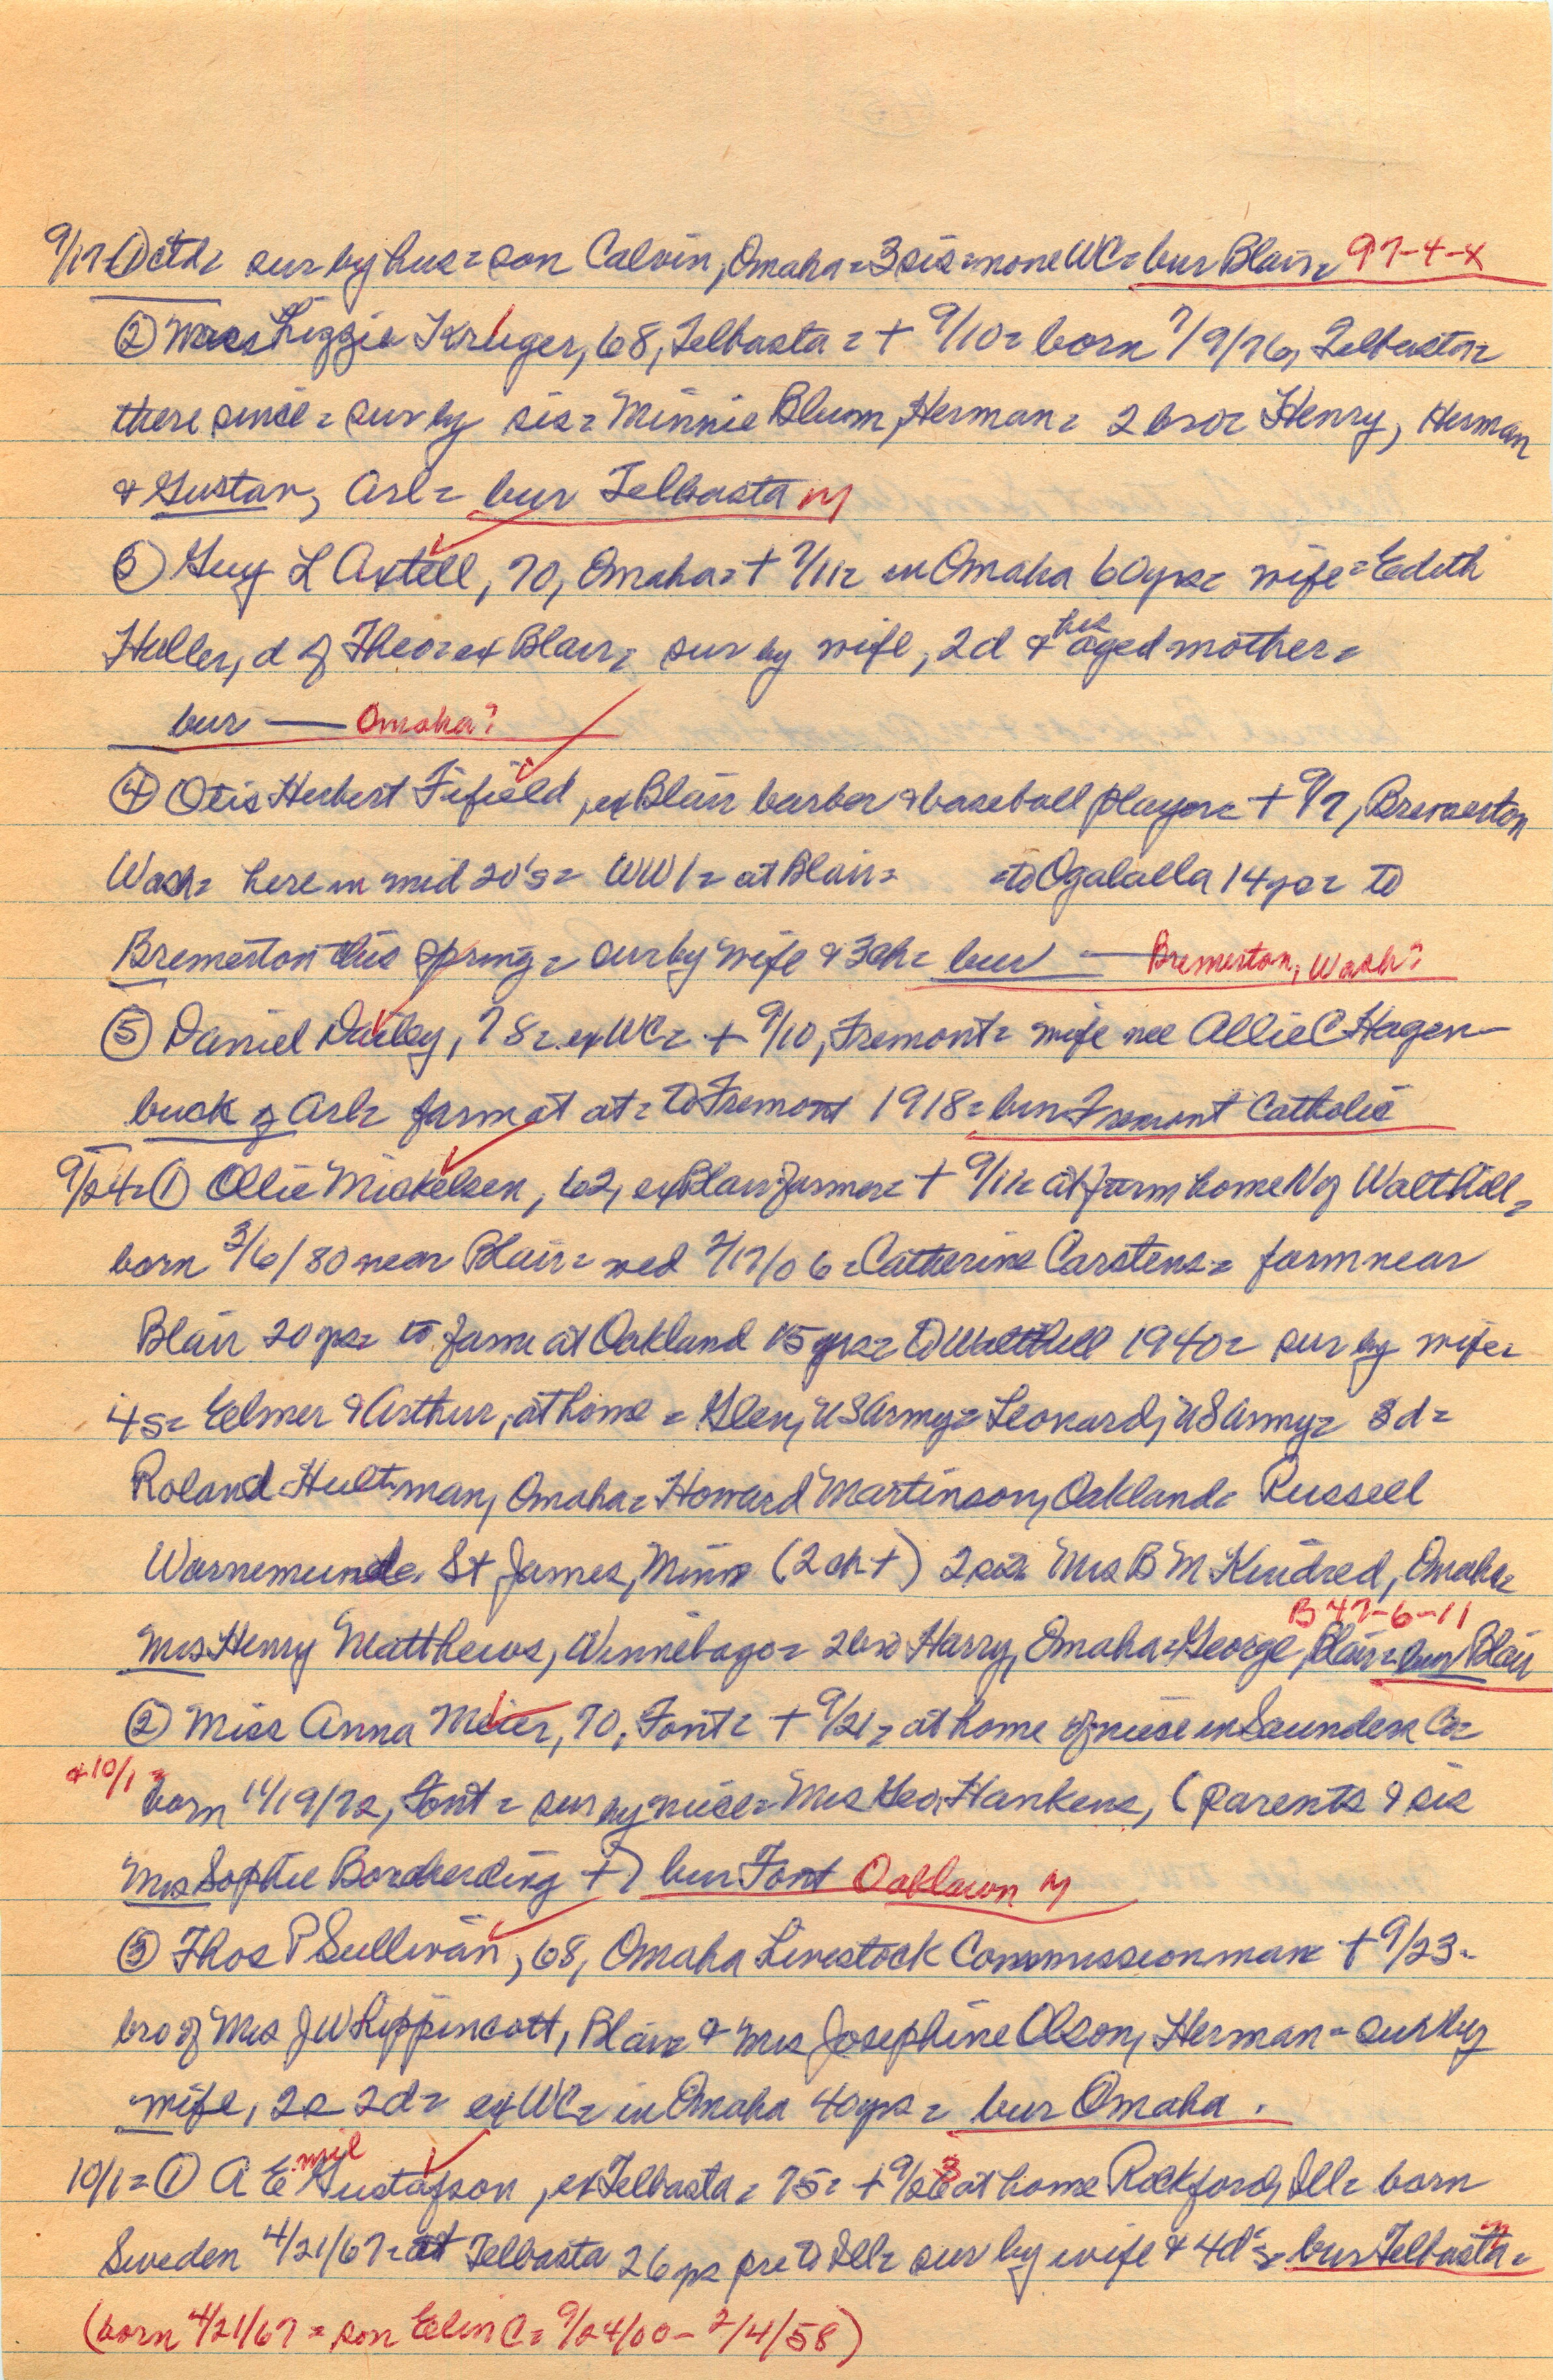 9/17=① ctd= sur by hus= son Calvin, Omaha= 3 sis= none WC= bur Blair= 97-4-x
② Miss Lizzie Krueger, 68, Telbasta= + 9/10= born 7/9/76, Telbasta=
there since= sur by sis= Minnie Blum, Herman= 2 bro= Henry, Herman
& Gustav, Arl= bur Telbasta M
③ Guy L Axtell, 70, Omaha= + 9/11= in Omaha 60 yrs= wife= Edith
Haller, d of Theo= ex Blair= sur by wife, 2d & his aged mother=
bur —— Omaha?
④ Otis Herbert Fifield, ex Blair barber & baseball player= + 9/7, Bremerton
Wash= here in mid 20's= WW1= at Blair= =to Ogalalla 14 yrs= to
Bremerton this spring= sur by wife & 3 ch= bur —— Bremerton, Wash?
⑤ Daniel Dailey, 78= ex WC= + 9/10, Fremont= wife nee Allie C Hagen-
buck of Arl= farm at at= to Fremont 1918= bur Fremont Catholic
9/24=① Ollie Mickelsen, 62, ex Blair farmer= + 9/11= at farm home N of Walthill=
born 3/6/80 near Blair= wed 2/17/06= Catherine Carstens= farm near
Blair 20 yrs= to farm at Oakland 15 yrs= to Walthill 1940= sur by wife=
4s= Elmer & Arthur, at home= Glen, US Army= Leonard, US Army= 3d=
Roland Hultman, Omaha= Howard Martinson, Oakland= Russell
Warnemunde St James, Minn (2 ch +) 2 sis= Mrs B M Kindred, Omaha=
Mrs Henry Matthews, Winnebago= 2 bro Harry, Omaha= George, Blair= bur Blair B 47-6-11
② Miss Anna Meier, 70, Font= + 9/21= at home of niece in Saunders Co=
& 10/1= born 11/19/72, Font= sur by niece= Mrs Geo Hankens, (parents & sis
Mrs Sophie Borcherding +) bur Font Oaklawn M
③ Thos P Sullivan, 68, Omaha Livestock Commission man= + 9/23=
bro of Mrs J W Lippincott, Blair= & Mrs Josephine Olson, Herman= sur by
wife, 2s 2d= ex WC= in Omaha 40 yrs= bur Omaha.
10/1=① A Emil Gustafson, ex Telbasta= 75= + 9/23 at home Rockford, Ill= born
Sweden 4/21/67= at Telbasta 26 yrs pre to Ill= sur by wife & 4 d's= bur Telbasta= M
(born 4/21/67= son Elin C= 9/24/00 - 2/4/58)